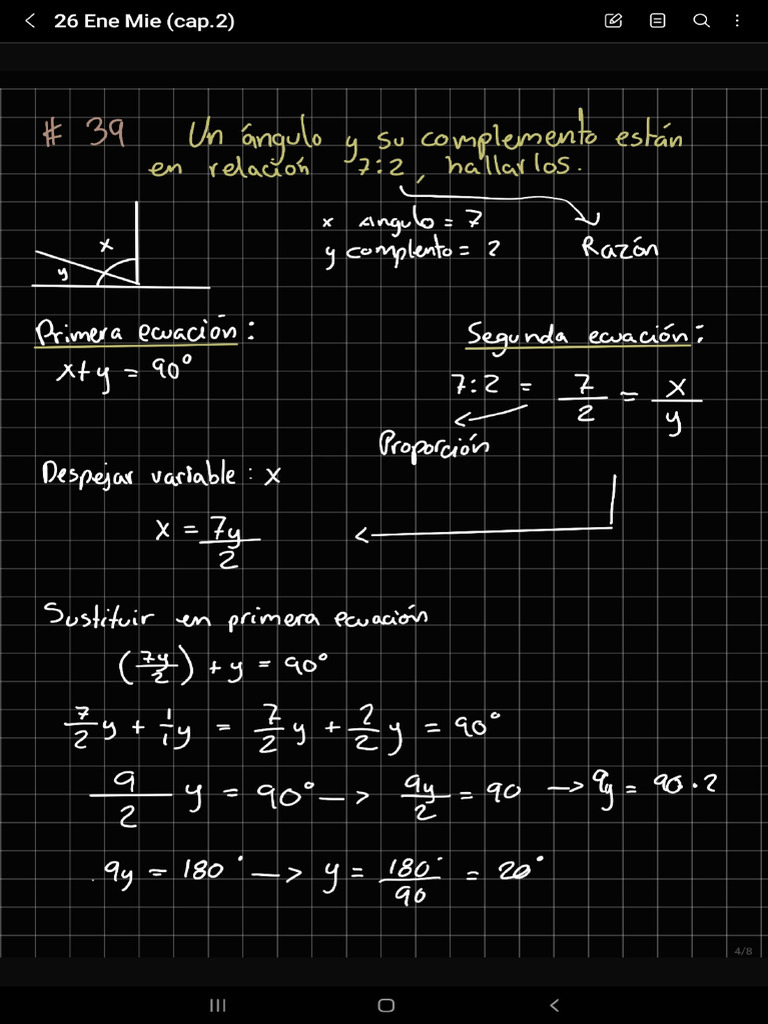 26 Ene Mie (cap.2)
# 39 Un ángulo y su complemento están
en relación 7:2, hallarlos.
x Angulo = 7
y complento = 2
Razón
x
y
Primera ecuación:
x+y = 90°
Segunda ecuación:
7:2 = 7/2 = x/y
Proporción
Despejar variable: x
x = 7y/2
Sustituir en primera ecuación
(7y/2) + y = 90°
7/2 y + 1/1 y = 7/2 y + 2/2 y = 90°
9/2 y = 90° —> 9y/2 = 90 —> 9y = 90 · 2
9y = 180° —> y = 180°/90 = 20°
4/8